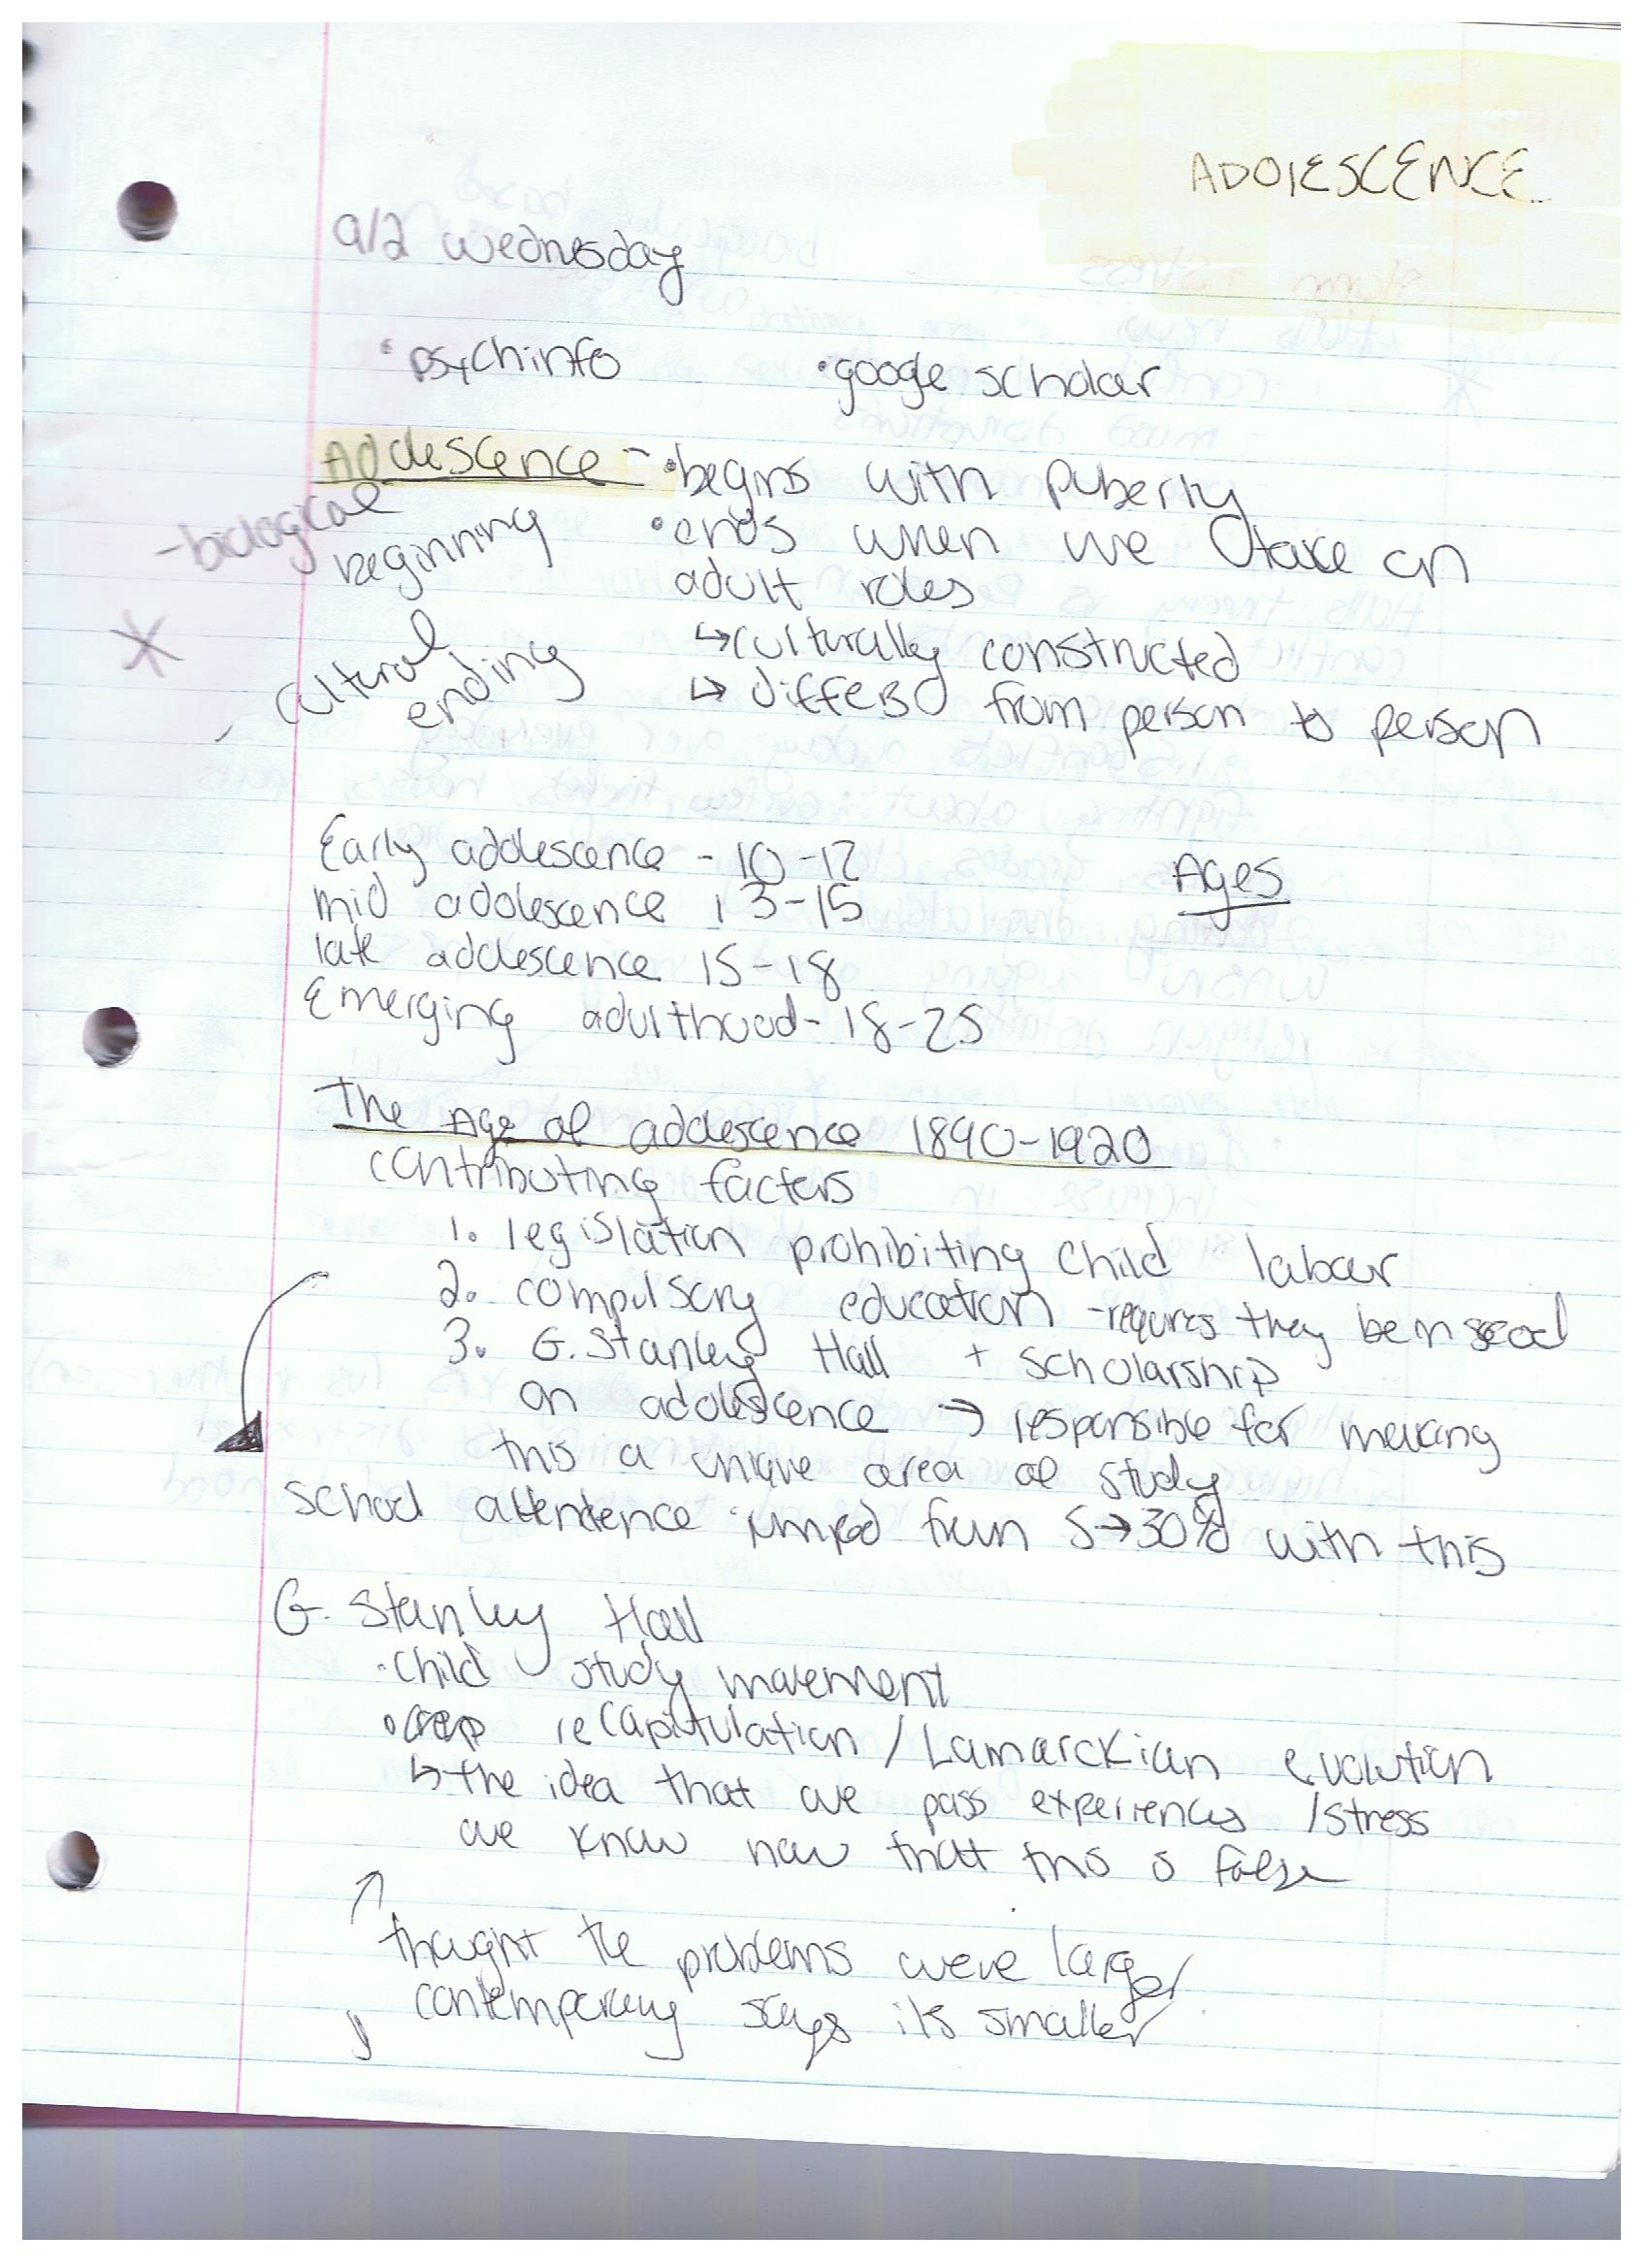 ADOLESCENCE
9/2 Wednesday
• psychinfo • google scholar
Adolescence - • begins with puberty
- biological beginning
• ends when we take on
adult roles
↳ culturally constructed
- cultural ending
↳ differs from person to person
Early adolescence - 10-12
Ages
mid adolescence 13-15
late adolescence 15-18
Emerging adulthood - 18-25
The Age of adolescence 1890-1920
contributing factors
1. legislation prohibiting child labor
2. compulsory education - requires they be in
3. G. Stanley Hall + scholarship
on adolescence → responsible for making
this a unique area of study
school attendence jumped from 5→30% with this
G. Stanley Hall
• Child study movement
• recapitulation / Lamarckian evolution
↳ the idea that we pass experiences / stress
we know now that this is false
↑ thought the problems were larger
contemporary says its smaller